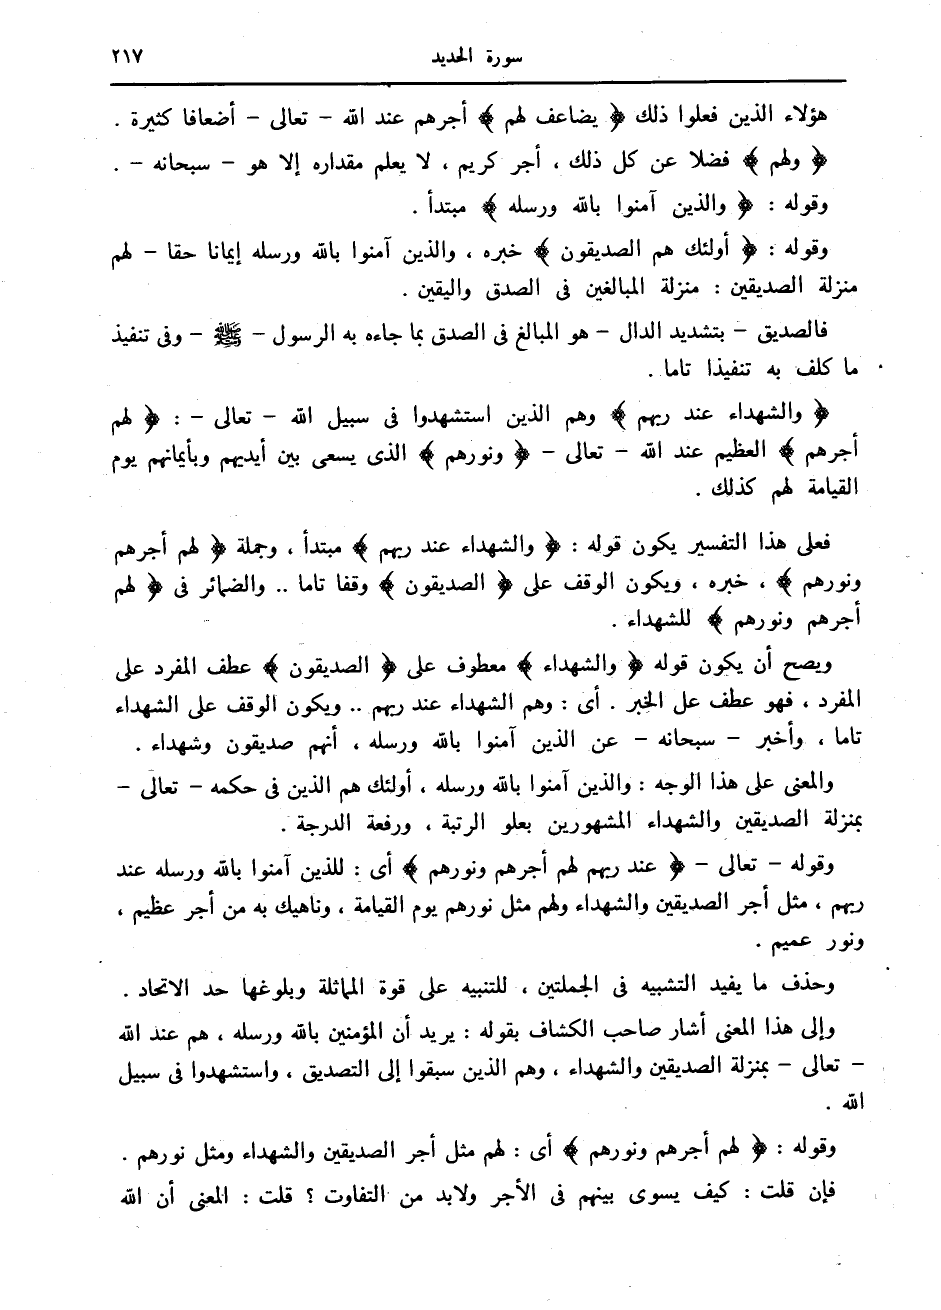 سورة الحديد ٢١٧
هؤلاء الذين فعلوا ذلك ﴿ يضاعف لهم ﴾ أجرهم عند الله – تعالى – أضعافا كثيرة .
﴿ ولهم ﴾ فضلا عن كل ذلك ، أجر كريم ، لا يعلم مقداره إلا هو – سبحانه – .
وقوله : ﴿ والذين آمنوا بالله ورسله ﴾ مبتدأ .
وقوله : ﴿ أولئك هم الصديقون ﴾ خبره ، والذين آمنوا بالله ورسله إيمانا حقا – لهم
منزلة الصديقين : منزلة المبالغين فى الصدق واليقين .
فالصديق – بتشديد الدال – هو المبالغ فى الصدق بما جاءه به الرسول – ﷺ – وفى تنفيذ
ما كلف به تنفيذا تاما .
﴿ والشهداء عند ربهم ﴾ وهم الذين استشهدوا فى سبيل الله – تعالى – : ﴿ لهم
أجرهم ﴾ العظيم عند الله – تعالى – ﴿ ونورهم ﴾ الذى يسعى بين أيديهم وبأيمانهم يوم
القيامة لهم كذلك .
فعلى هذا التفسير يكون قوله : ﴿ والشهداء عند ربهم ﴾ مبتدأ ، وجملة ﴿ لهم أجرهم
ونورهم ﴾ ، خبره ، ويكون الوقف على ﴿ الصديقون ﴾ وقفا تاما .. والضمائر فى ﴿ لهم
أجرهم ونورهم ﴾ للشهداء .
ويصح أن يكون قوله ﴿ والشهداء ﴾ معطوف على ﴿ الصديقون ﴾ عطف المفرد على
المفرد ، فهو عطف عل الخبر . أى : وهم الشهداء عند ربهم .. ويكون الوقف على الشهداء
تاما ، وأخبر – سبحانه – عن الذين آمنوا بالله ورسله ، أنهم صديقون وشهداء .
والمعنى على هذا الوجه : والذين آمنوا بالله ورسله ، أولئك هم الذين فى حكمه – تعالى –
بمنزلة الصديقين والشهداء المشهورين بعلو الرتبة ، ورفعة الدرجة .
وقوله – تعالى – ﴿ عند ربهم لهم أجرهم ونورهم ﴾ أى : للذين آمنوا بالله ورسله عند
ربهم ، مثل أجر الصديقين والشهداء ولهم مثل نورهم يوم القيامة ، وناهيك به من أجر عظيم ،
ونور عميم .
وحذف ما يفيد التشبيه فى الجملتين ، للتنبيه على قوة المماثلة وبلوغها حد الاتحاد .
وإلى هذا المعنى أشار صاحب الكشاف بقوله : يريد أن المؤمنين بالله ورسله ، هم عند الله
– تعالى – بمنزلة الصديقين والشهداء ، وهم الذين سبقوا إلى التصديق ، واستشهدوا فى سبيل
الله .
وقوله : ﴿ لهم أجرهم ونورهم ﴾ أى : لهم مثل أجر الصديقين والشهداء ومثل نورهم .
فإن قلت : كيف يسوى بينهم فى الأجر ولابد من التفاوت ؟ قلت : المعنى أن الله